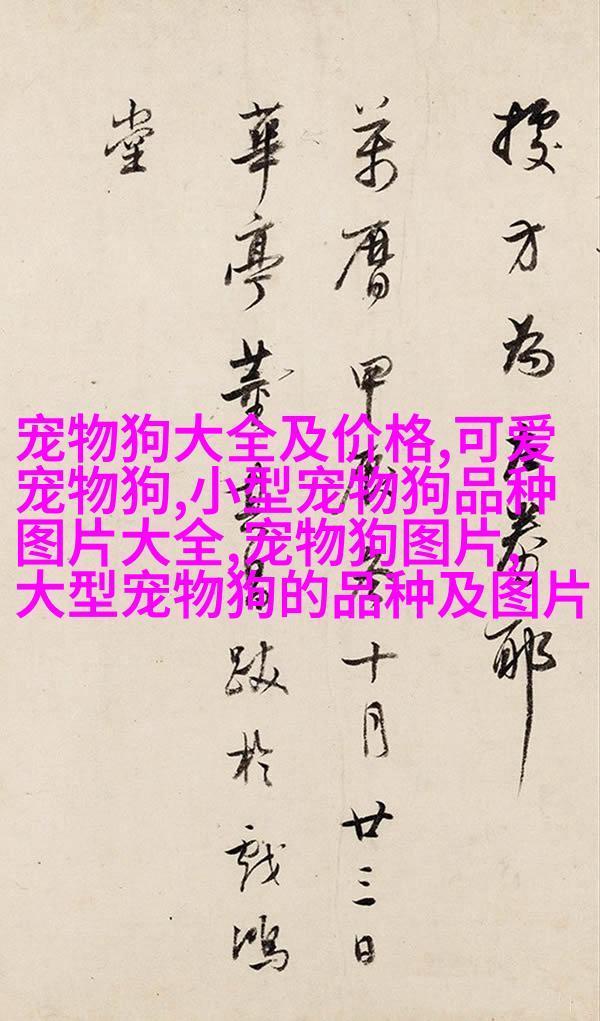 方為耶
萬曆甲辰冬十月廿三日
華亭董其昌跋於戲鴻
堂
宠物狗大全及价格,可爱
宠物狗,小型宠物狗品种
图片大全,宠物狗图片,
大型宠物狗的品种及图片